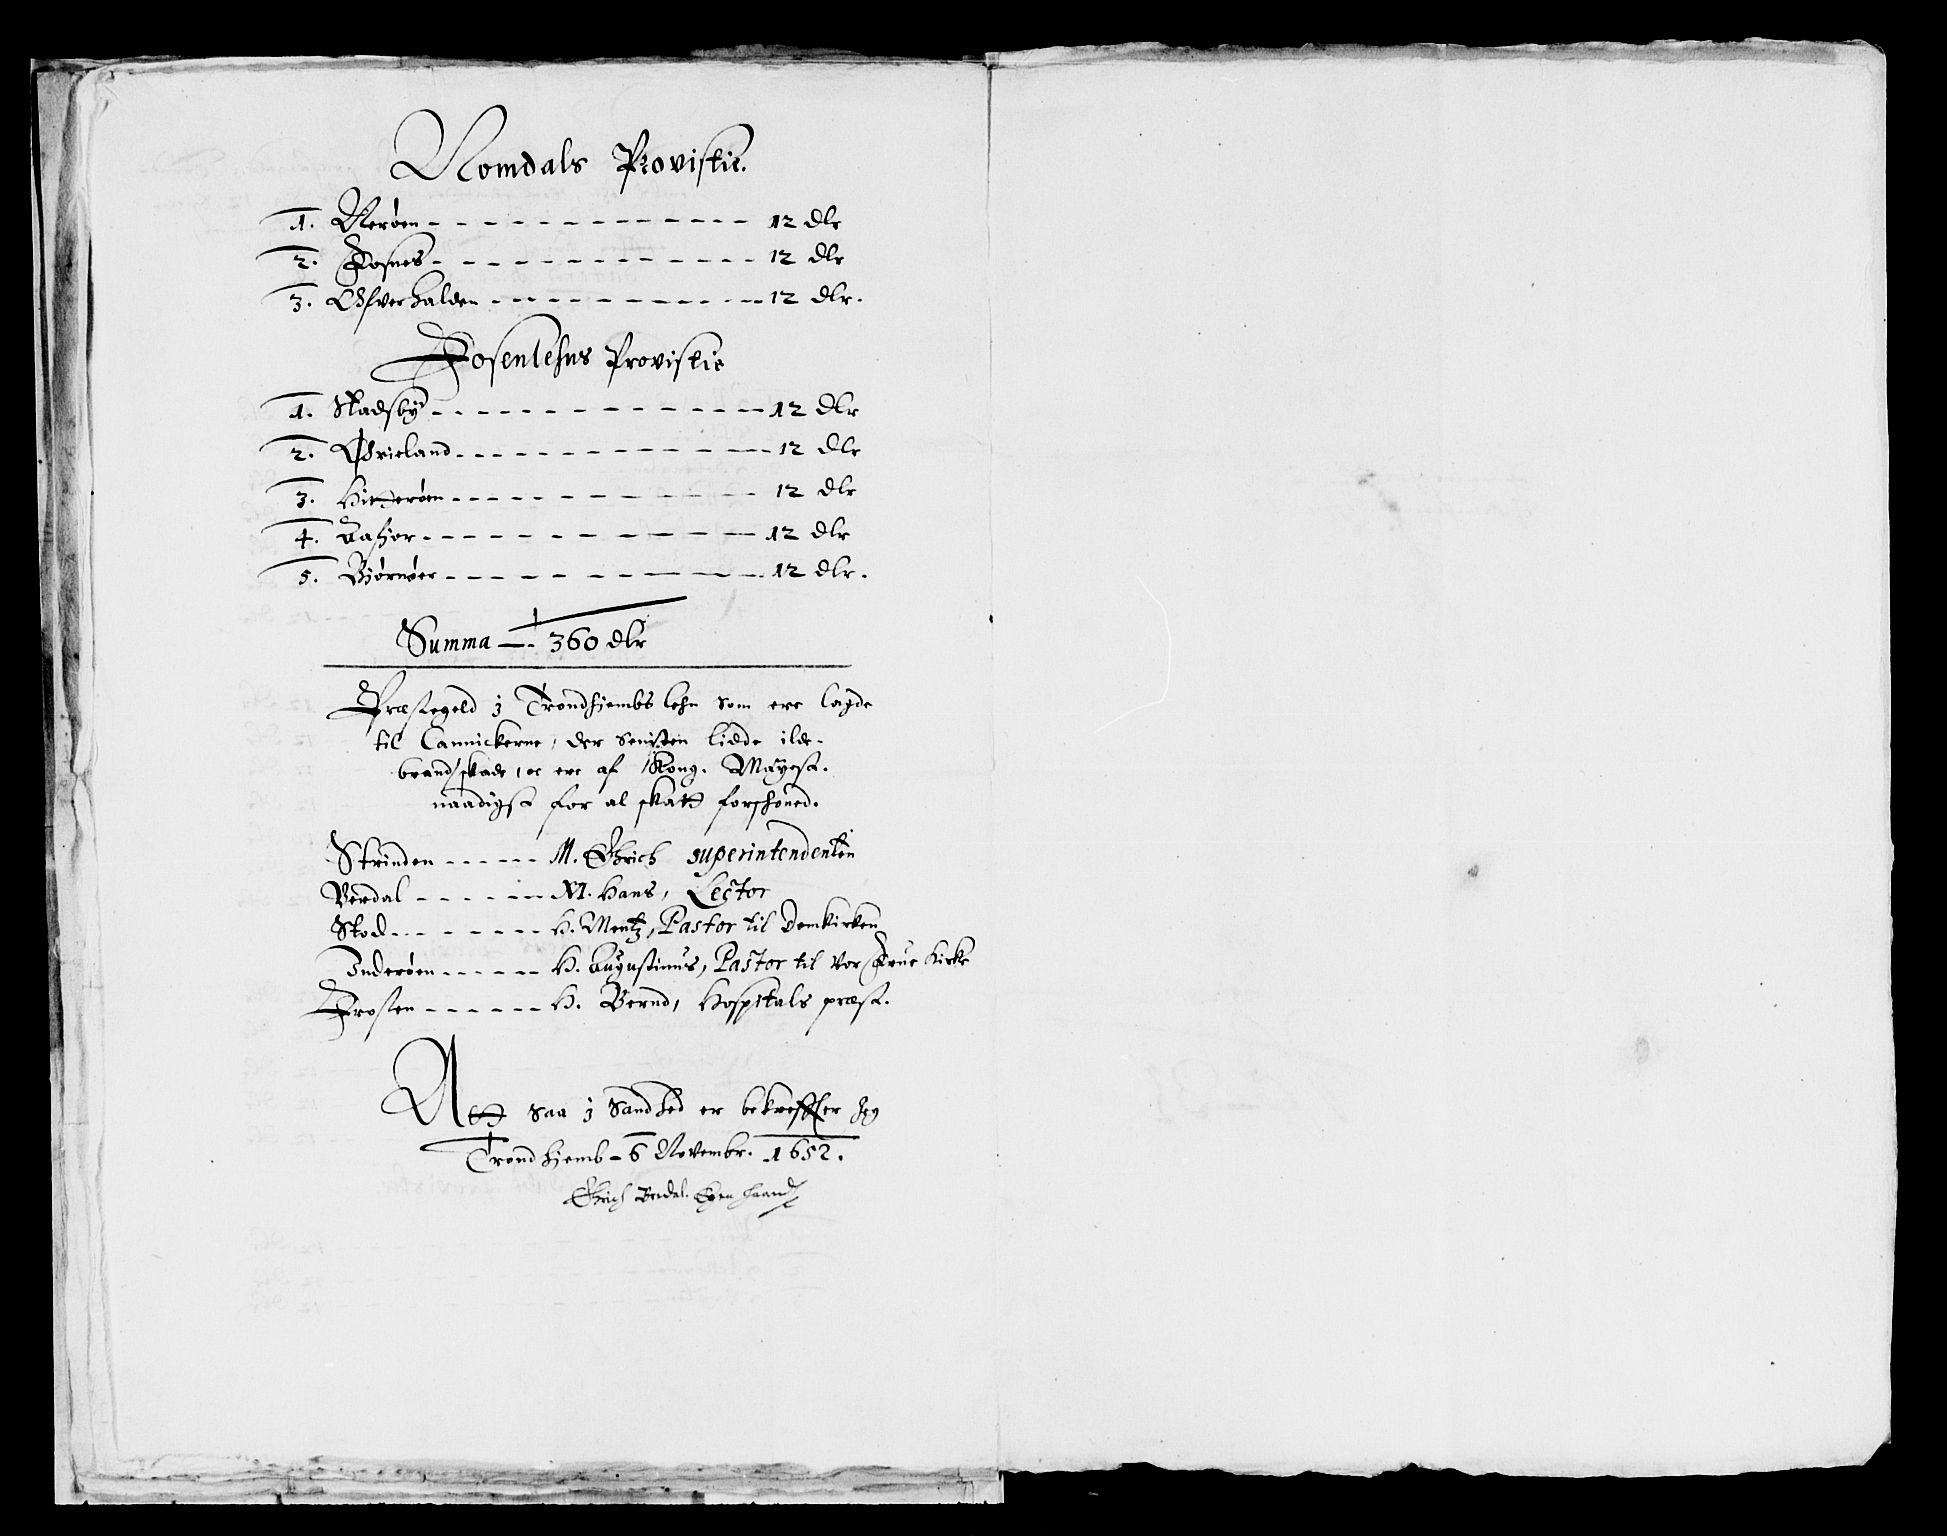 Nomdals Provistie.
1. Nerøen - - - - - - - - - - - - - 12 dlr
2. Fosnes - - - - - - - - - - - - 12 dlr
3. Ofverhalden - - - - - - - - - - - 12 dlr.
Fosenlehns Provistie
1. Stadsby - - - - - - - - - - - - 12 dlr
2. Ørieland - - - - - - - - - - - - 12 dlr
3. Hitterøen - - - - - - - - - - - 12 dlr
4. Aafior - - - - - - - - - - - - 12 dlr
5. Biørnøer - - - - - - - - - - - 12 dlr.
Summa —. 360 dlr
Præstegeld i Trondhiembs lehn som ere lagde
til Cannickerne, der senisten lidde ilde-
brandskade, oc ere af Kong. Mayest.
naadigst for al skatt forschoned.
Strinden - - - - - M. Erich superintendenten
Verdal - - - - - - M. Hans, Lector
Stod - - - - - - - H. Mentz, Pastor til Domkirken
Inderøen - - - - - H. Augustinus, Pastor til Vor Frue Kirke
Frosten - - - - - - H. Bernd, Hospitals præst.
Att saa i Sandhed er bekreffter Jeg
Trondhiemb - 6 Novembr. 1652.
Erich Bredal. Egen haand